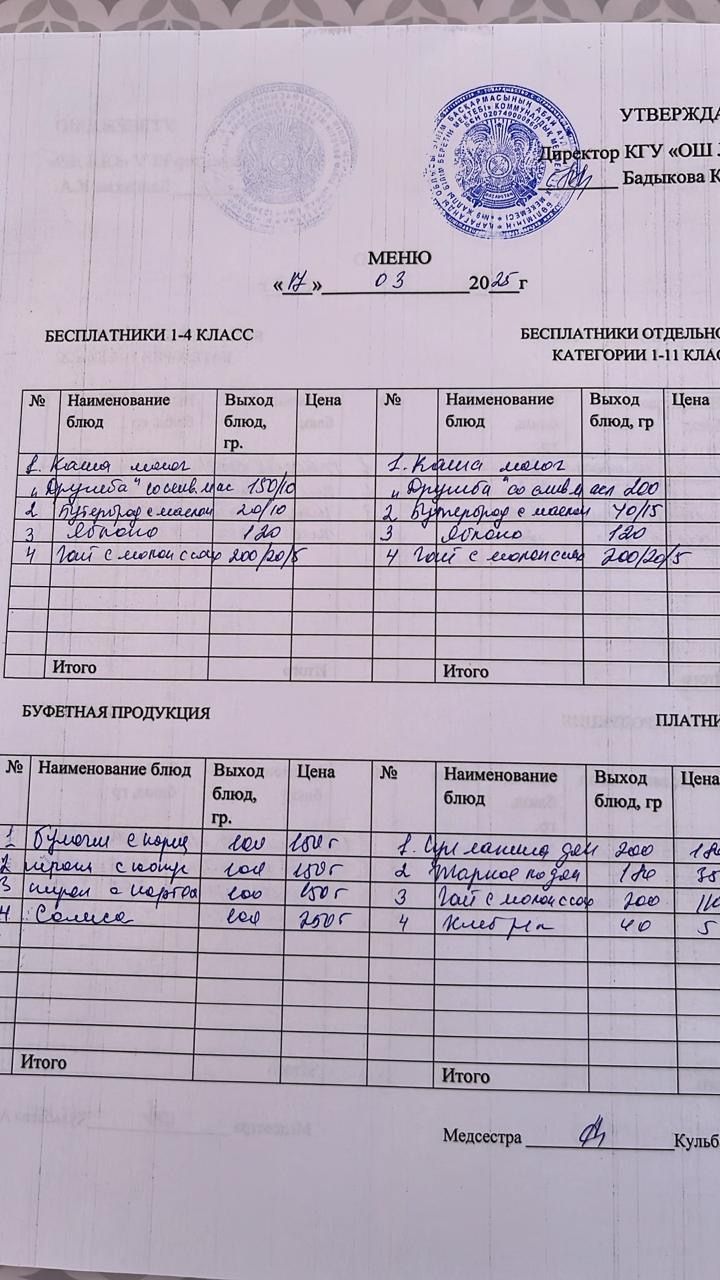 УТВЕРЖДА
Директор КГУ «ОШ
Бадыкова К
МЕНЮ
«17» 03 2025г
БЕСПЛАТНИКИ 1-4 КЛАСС
БЕСПЛАТНИКИ ОТДЕЛЬНО
КАТЕГОРИИ 1-11 КЛАС
№ Наименование блюд Выход блюд, гр. Цена № Наименование блюд Выход блюд, гр Цена
1. Каша молоч 1. Каша молоч
"Дружба" со слив.мас 150/10 "Дружба" со слив масл 200
2 Бутерброд с маслом 20/10 2 Бутерброд с маслом 40/15
3 Яблоко 120 3 Яблоко 120
4 Чай с молоком сах 200/20/5 4 Чай с молоком сах 200/20/5
Итого Итого
БУФЕТНАЯ ПРОДУКЦИЯ
ПЛАТНИ
№ Наименование блюд Выход блюд, гр. Цена № Наименование блюд Выход блюд, гр Цена
1 Булочки с кориц 100 150г 1. Суп лапша дом 200
2 пирож с 100 150г 2 Жаркое по дом 180
3 пирож с картоф 100 150г 3 Чай с молоком сах 200 110
4 100 250г 4 Хлеб 40 5
Итого Итого
Медсестра Кульб